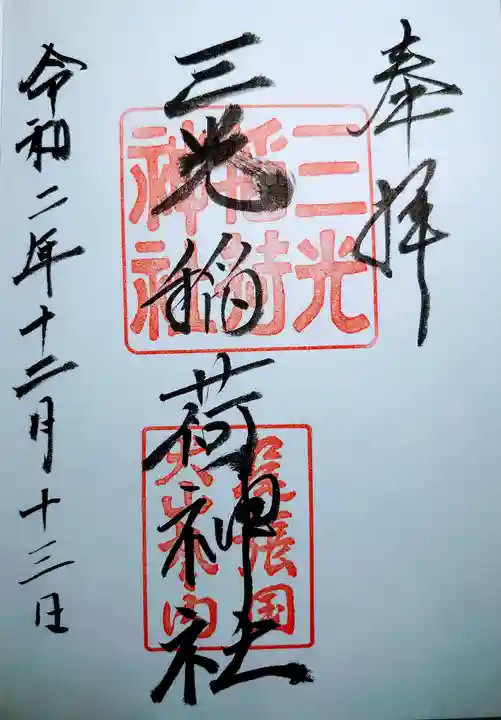 奉拝
三光稲荷神社
三光稲荷神社
尾張国犬山城内
令和二年十二月十三日